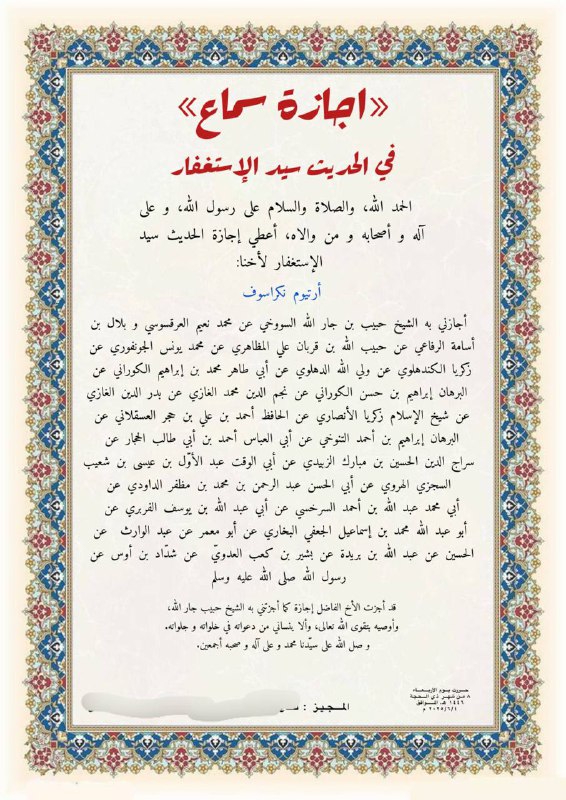 «اجازة سماع»
في الحديث سيد الإستغفار
الحمد الله، والصلاة والسلام على رسول الله، و على
آله و أصحابه و من والاه، أعطي إجازة الحديث سيد
الإستغفار لأخنا:
أرتيوم نكراسوف
أجازني به الشيخ حبيب بن جار الله السووخي عن محمد نعيم العرقسوسي و بلال بن
أسامة الرفاعي عن حبيب الله بن قربان علي المظاهري عن محمد يونس الجونفوري عن
زكريا الكندهلوي عن ولي الله الدهلوي عن أبي طاهر محمد بن إبراهيم الكوراني عن
البرهان إبراهيم بن حسن الكوراني عن نجم الدين محمد الغازي عن بدر الدين الغازي
عن شيخ الإسلام زكريا الأنصاري عن الحافظ أحمد بن علي بن حجر العسقلاني عن
البرهان إبراهيم بن أحمد التنوخي عن أبي العباس أحمد بن أبي طالب الحجار عن
سراج الدين الحسين بن مبارك الزبيدي عن أبي الوقت عبد الأوّل بن عيسى بن شعيب
السجزي الهروي عن أبي الحسن عبد الرحمن بن محمد بن مظفر الداودي عن
أبي محمد عبد الله بن أحمد السرخسي عن أبي عبد الله بن يوسف الفربري عن
أبو عبد الله محمد بن إسماعيل الجعفي البخاري عن أبو معمر عن عبد الوارث عن
الحسين عن عبد الله بن بريدة عن بشير بن كعب العدويّ عن شدّاد بن أوس عن
رسول الله صلى الله عليه وسلم
قد أجزت الأخ الفاضل إجازة كما أجزتني به الشيخ حبيب جار الله،
وأوصيه بتقوى الله تعالى، وألا ينساني من دعواته في خلواته و جلواته.
و صل الله على سيّدنا محمد و على آله و صحبه أجمعين.
حررت بيوم الإربعاء
٨ من شهر ذي الحجة
١٤٤٦ هـ، الموافق
٢٠٢٥/٦/٤ م
المجيز :